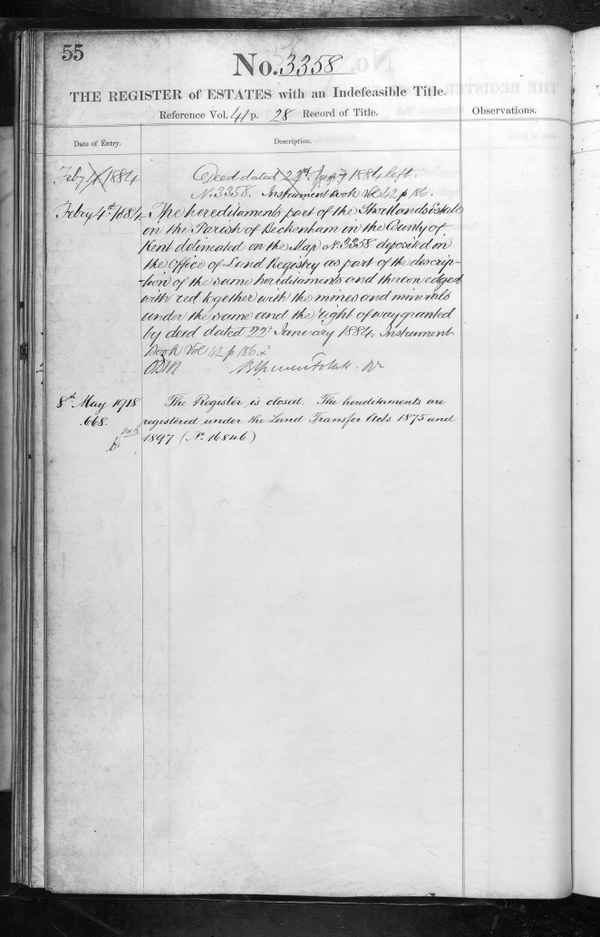 55
No. 3358
THE REGISTER of ESTATES with an Indefeasible Title.
Reference Vol. 41 p. 28 Record of Title.
Observations.
Date of Entry.
Description.
Feby 4 1884
Deed dated 22nd Jany 1884 left.
N. 3358. Instrument Book Vol 42 p 186.
Febry 4th 1884
The hereditaments part of the Shortlands Estate
in the Parish of Beckenham in the County of
Kent delineated on the Map No. 3358 deposited in
the Office of Land Registry as part of the descrip-
-tion of the same hereditaments and thereon edged
with red together with the mines and minerals
under the same and the right of way granted
by deed dated 22d January 1884. Instrument
Book Vol 42 p 186.
8th May 1918
668.
The Register is closed. The hereditaments are
registered under the Land Transfer Acts 1875 and
1897 (No 16846)